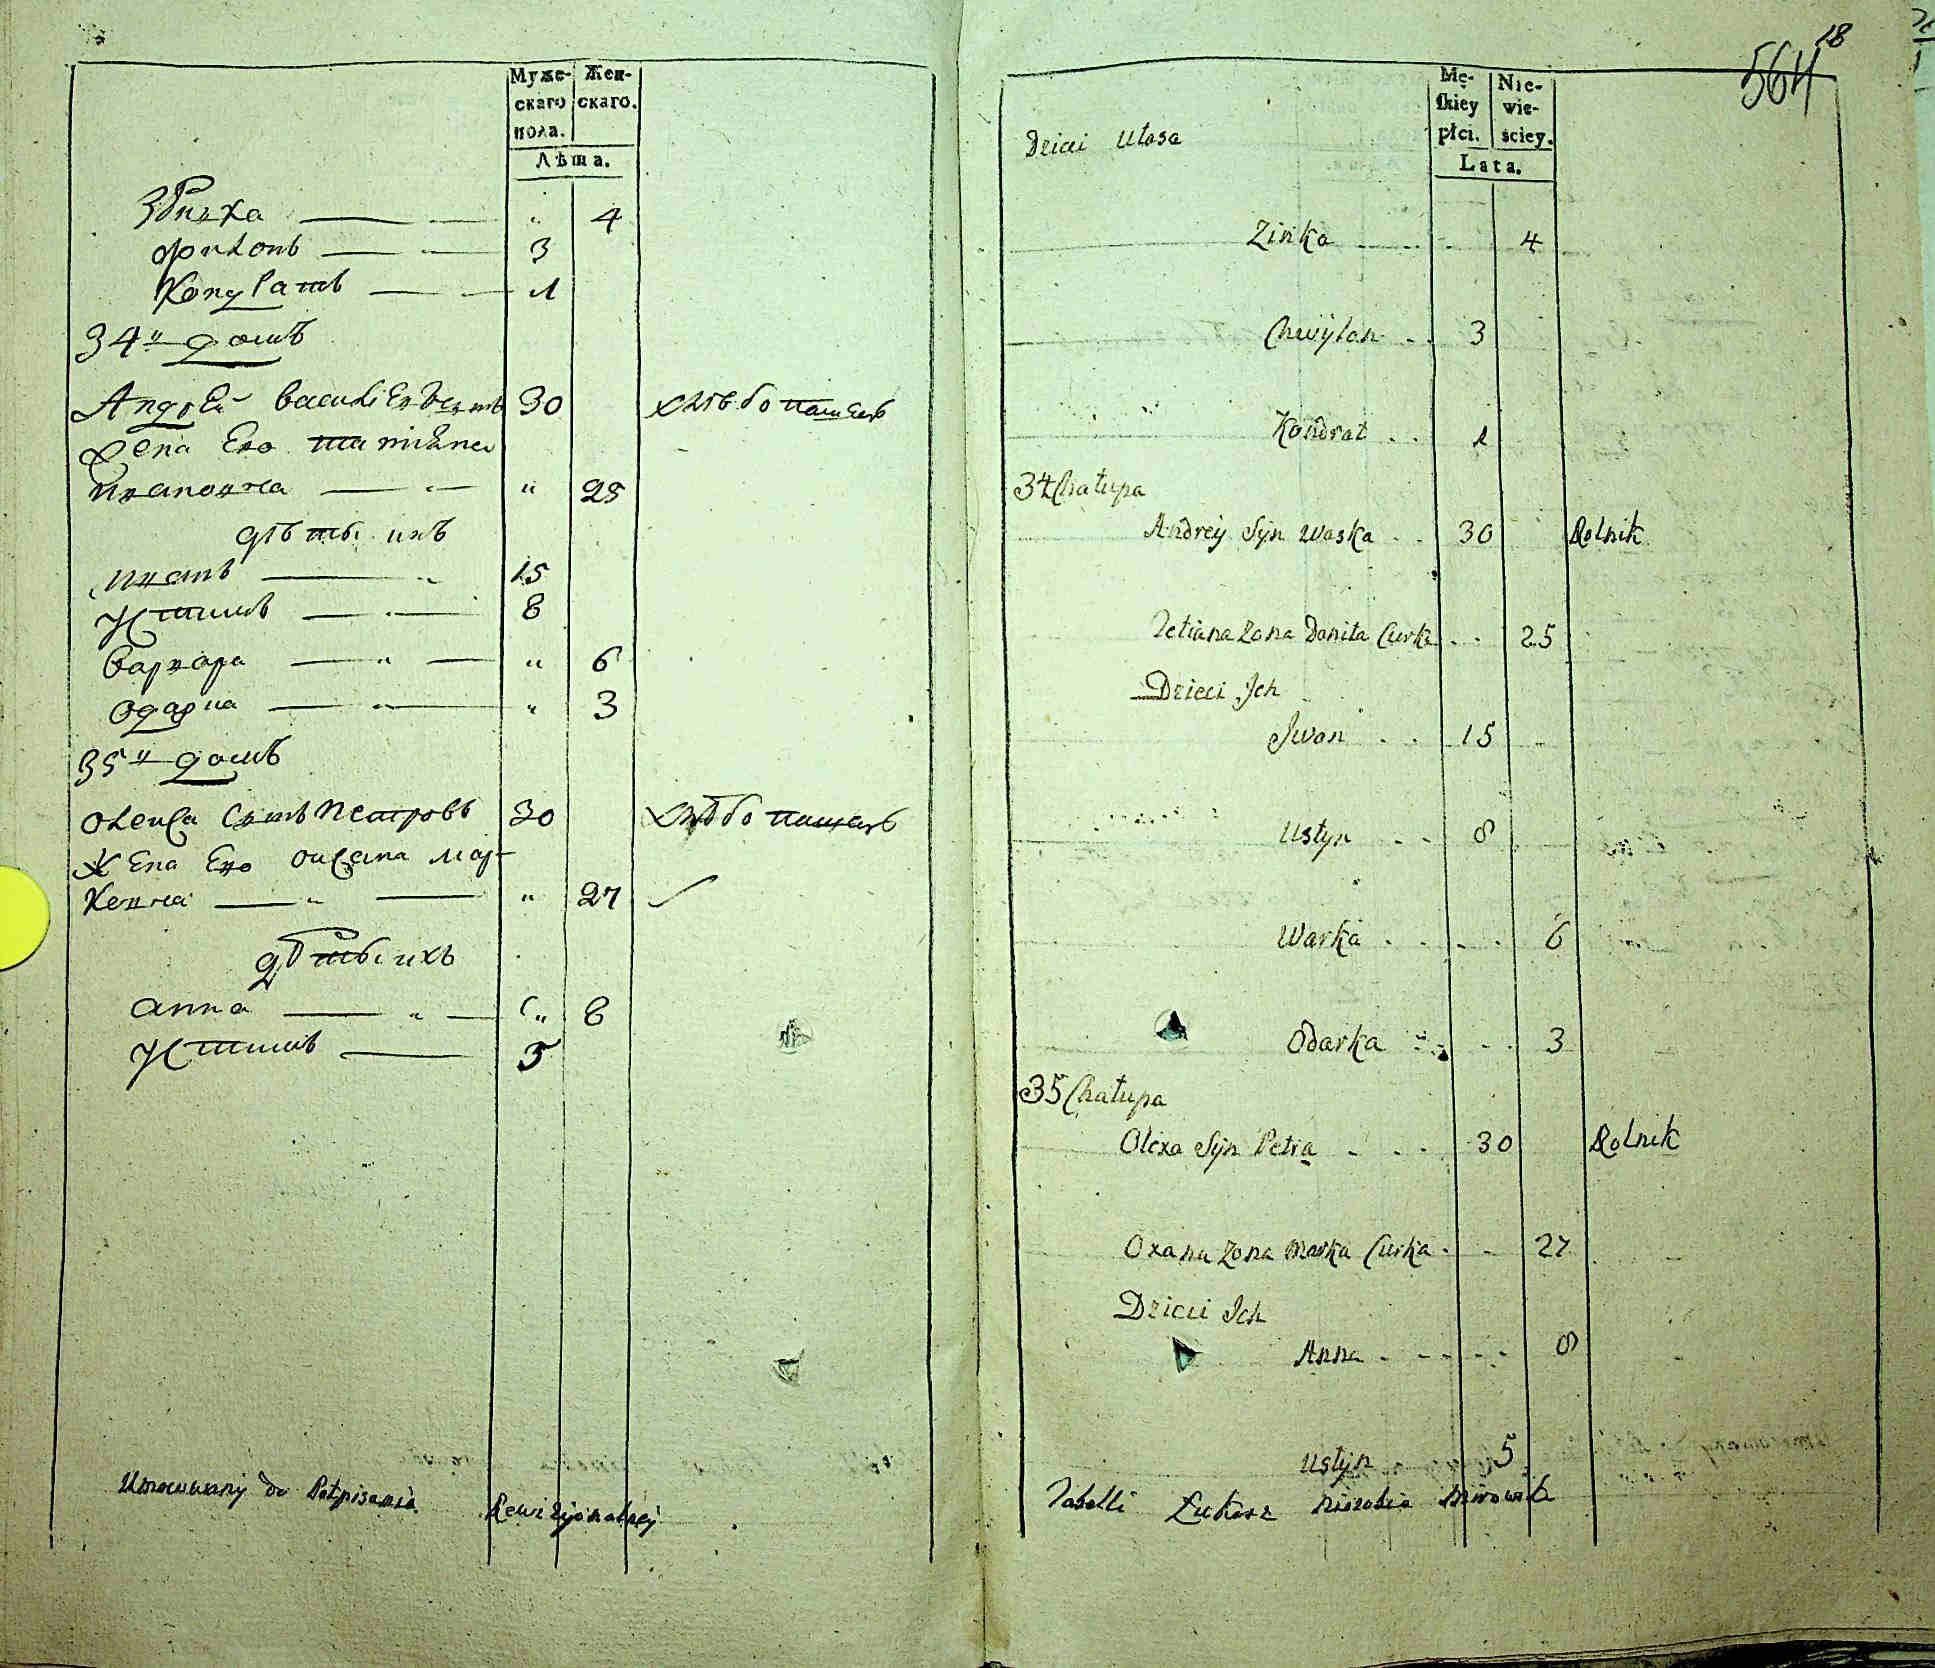 Муже-
скаго
пола.
Жен-
скаго.
Лѣта.
Зѣнька 4
Филонъ 3
Кондратъ 1
34й домъ
Андрей Васильевъ сынъ 30 хлѣбопашецъ
Жена Ево
Ивановна „ 25
дѣти ихъ
Иванъ 15
Устимъ 8
Варвара „ 6
Одарка „ 3
35й домъ
Олекса сынъ Петровъ 30 хлѣбопашецъ
Жена Ево Оксана Мар-
кевна „ 27
дѣти ихъ
Анна „ 8
Устимъ 5
Umocowany do Potpisania Rewizyjonalney
564 18
Mę-
skiey
płci.
Nie-
wie-
sciey.
Lata.
Dzieci Własa
Zinka 4
Chwyłon 3
Kondrat 1
34 Chałupa
Andrey Syn Waska 30 Rolnik
Tetiana Zona Daniła Curka 25
Dzieci Ich
Iwan 15
Ustyn 8
Warka 6
Odarka 3
35 Chałupa
Olexa Syn Petra 30 Rolnik
Oxana Zona Marka Curka 27
Dzieci Ich
Anna 8
Ustyn 5
Tabelli Łukasz